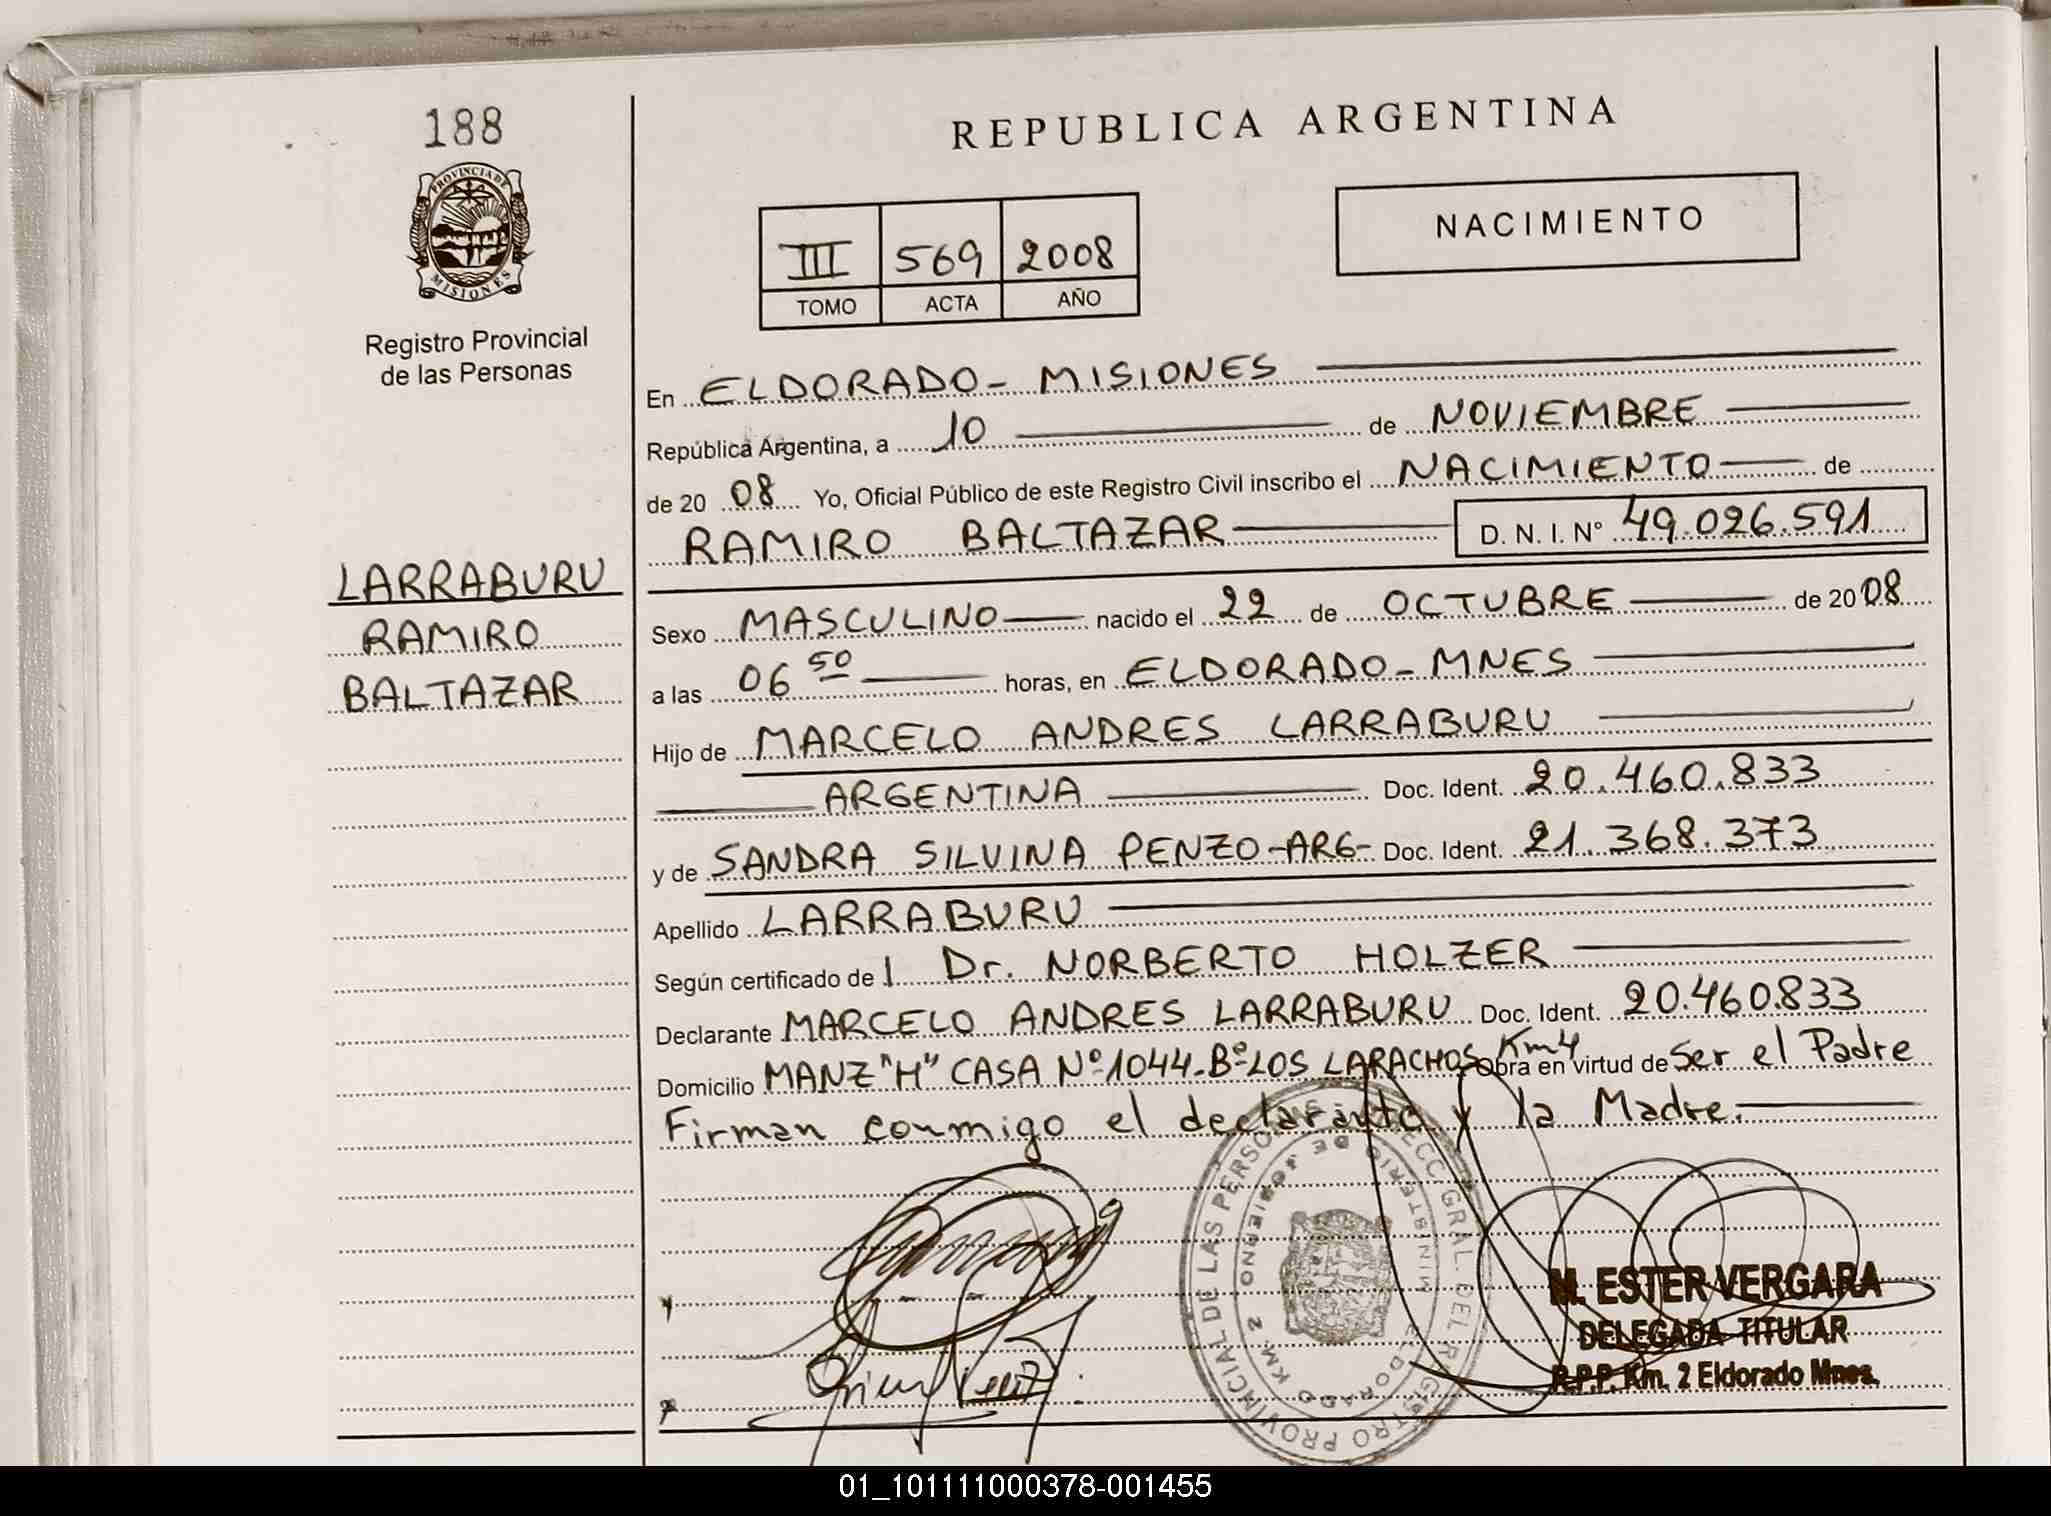 188
PROVINCIA DE
MISIONES
Registro Provincial
de las Personas
LARRABURU
RAMIRO
BALTAZAR
REPUBLICA ARGENTINA
III 569 2008
TOMO ACTA AÑO
NACIMIENTO
En ELDORADO - MISIONES
República Argentina, a 10 de NOVIEMBRE
de 20 08 Yo, Oficial Público de este Registro Civil inscribo el NACIMIENTO de
RAMIRO BALTAZAR D. N. I. N° 49.026.591
Sexo MASCULINO nacido el 22 de OCTUBRE de 20 08
a las 06 50 horas, en ELDORADO - MNES
Hijo de MARCELO ANDRES LARRABURU
ARGENTINA Doc. Ident. 20.460.833
y de SANDRA SILVINA PENZO - ARG - Doc. Ident. 21.368.373
Apellido LARRABURU
Según certificado del Dr. NORBERTO HOLZER
Declarante MARCELO ANDRES LARRABURU Doc. Ident. 20.460.833
Domicilio MANZ "H" CASA Nº 1044 - Bº LOS LARACHOS Km 4 obra en virtud de Ser el Padre
Firman conmigo el declarante y la Madre.
DIRECC. GRAL. DEL REGISTRO PROVINCIAL DE LAS PERSONAS
MINISTERIO DE GOBIERNO
ELDORADO KM. 2
M. ESTER VERGARA
DELEGADA TITULAR
R.P.P. Km. 2 Eldorado Mnes.
01_101111000378-001455